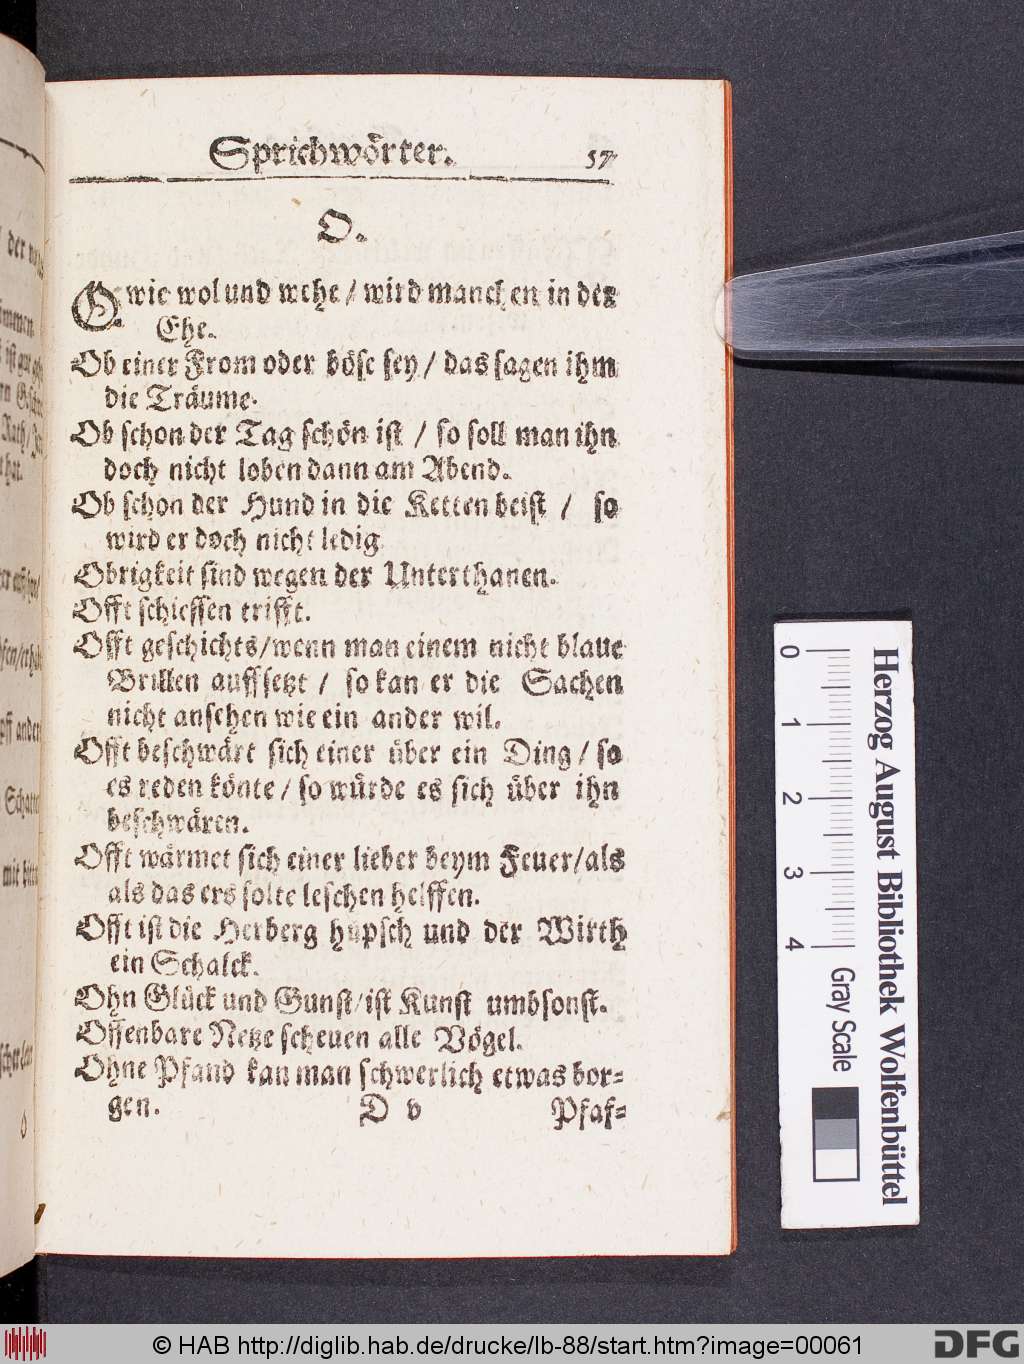 Sprichwörter. 57
O.
O wie wol und wehe / wird manchen in der
Ehe.
Ob einer From oder böse sey / das sagen ihm
die Träume.
Ob schon der Tag schön ist / so soll man ihn
doch nicht loben dann am Abend.
Ob schon der Hund in die Ketten beist / so
wird er doch nicht ledig
Obrigkeit sind wegen der Unterthanen.
Offt schiessen trifft.
Offt geschichts/wenn man einem nicht blaue
Brillen auffsetzt / so kan er die Sachen
nicht ansehen wie ein ander wil.
Offt beschwärt sich einer über ein Ding / so
es reden könte / so würde es sich über ihn
beschwären.
Offt wärmet sich einer lieber beym Feuer/als
als das ers solte leschen helffen.
Offt ist die Herberg hüpsch und der Wirth
ein Schalck.
Ohn Glück und Gunst/ist Kunst umbsonst.
Offenbare Netze scheuen alle Vögel.
Ohne Pfand kan man schwerlich etwas bor-
gen. D v Pfaf-
0 1 2 3 4 Gray Scale
Herzog August Bibliothek Wolfenbüttel
© HAB http://diglib.hab.de/drucke/lb-88/start.htm?image=00061
DFG